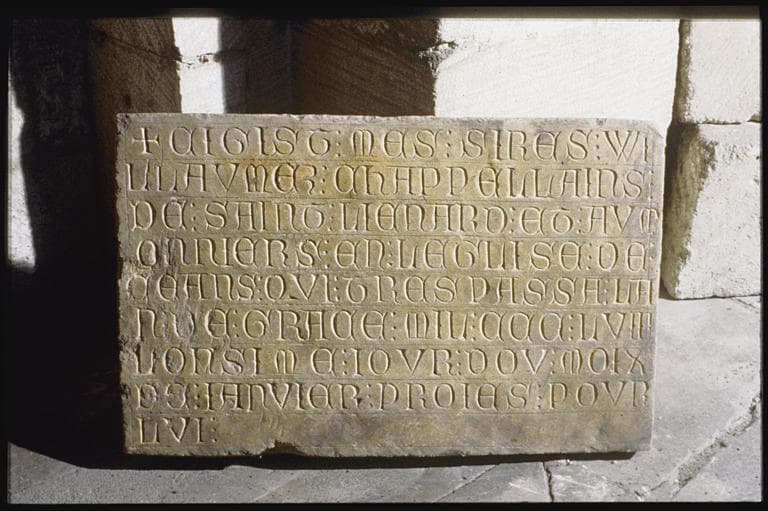 + CI GIST : MES : SIRES : WI
LLAVMEZ : CHAPPELLAINS :
DE : SAINT : LIENARD : ET : AVM
ONNIERS : EN : LEGLISE : DE :
CEANS : QVI : TRESPASSA : LA
N : DE : GRACE : MIL : CCC : LVIII
LONSIME : IOVR : DOV : MOIX
DE : IANVIER : PROIES : POVR
LVI :